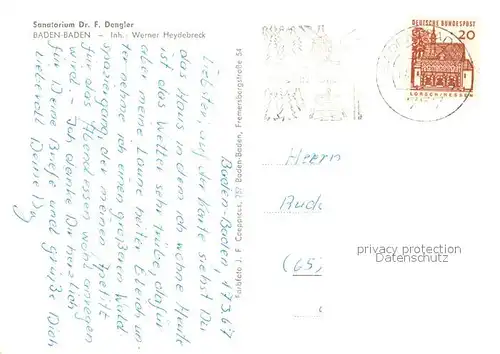 Sanatorium Dr. F. Dengler
BADEN-BADEN – Inh. Werner Heydebreck
Baden-Baden, 17.3.67
Liebster, auf der Karte siehst Du
das Haus in dem ich wohne. Heute
ist das Wetter sehr trübe, dafür
aber meine Laune heiter. Eben
nehme ich einen großeren Wald
spaziergang, der meinen Appetit
für das Abendessen wohl anregen
wird. – Ich danke Dir herzlich
für Deine Briefe und grüße Dich
liebevoll Deine
Farbfoto J. F. Coeppicus, 757 Baden-Baden, Fremersbergstraße 54
DEUTSCHE BUNDESPOST
20
LORSCH/HESSEN
Herrn
(65)
privacy protection
Datenschutz